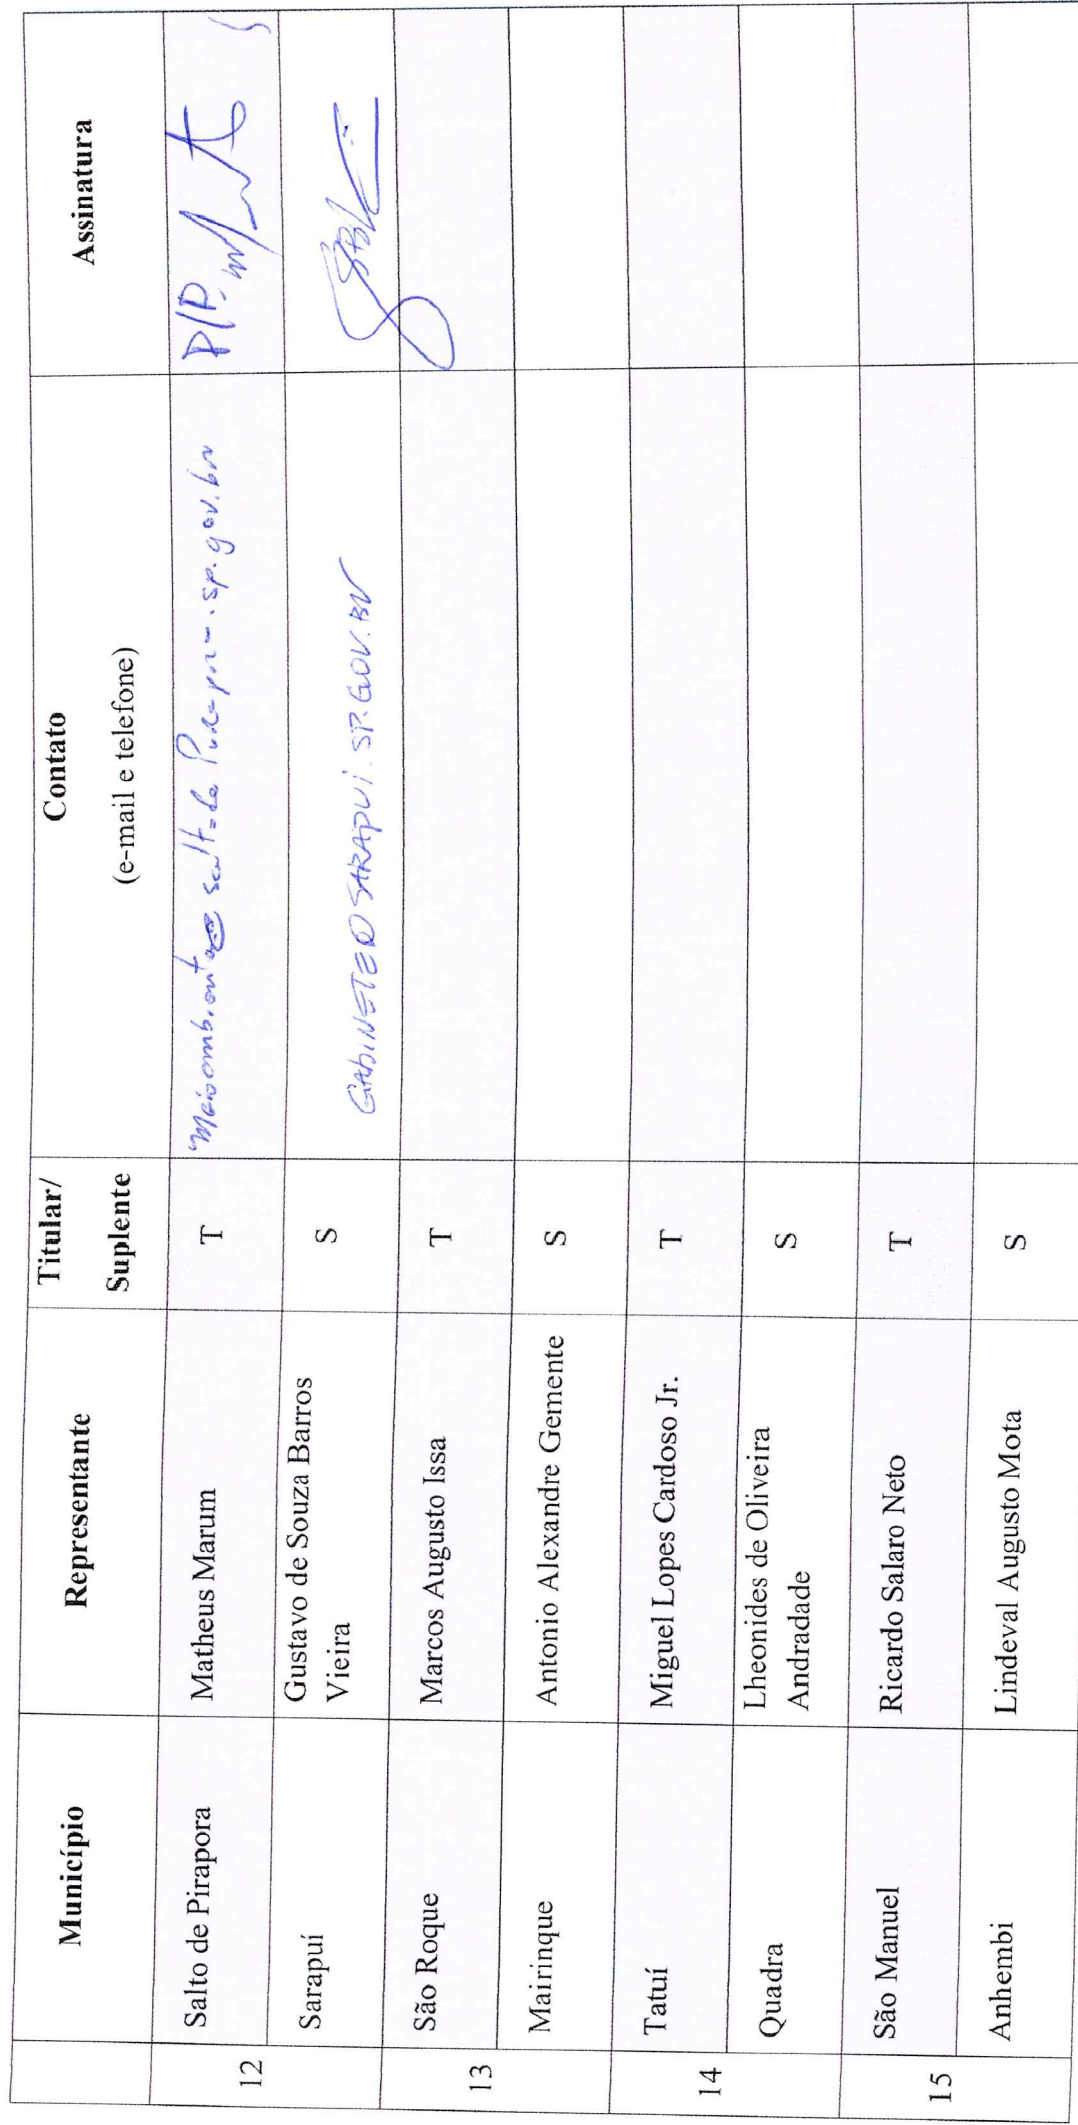 Município
Representante
Titular/
Suplente
Contato
(e-mail e telefone)
Assinatura
12
Salto de Pirapora
Matheus Marum
T
P/P.
Sarapuí
Gustavo de Souza Barros
Vieira
S
GABINETE@SARAPUI.SP.GOV.BR
13
São Roque
Marcos Augusto Issa
T
Mairinque
Antonio Alexandre Gemente
S
14
Tatuí
Miguel Lopes Cardoso Jr.
T
Quadra
Lheonides de Oliveira
Andradade
S
15
São Manuel
Ricardo Salaro Neto
T
Anhembi
Lindeval Augusto Mota
S